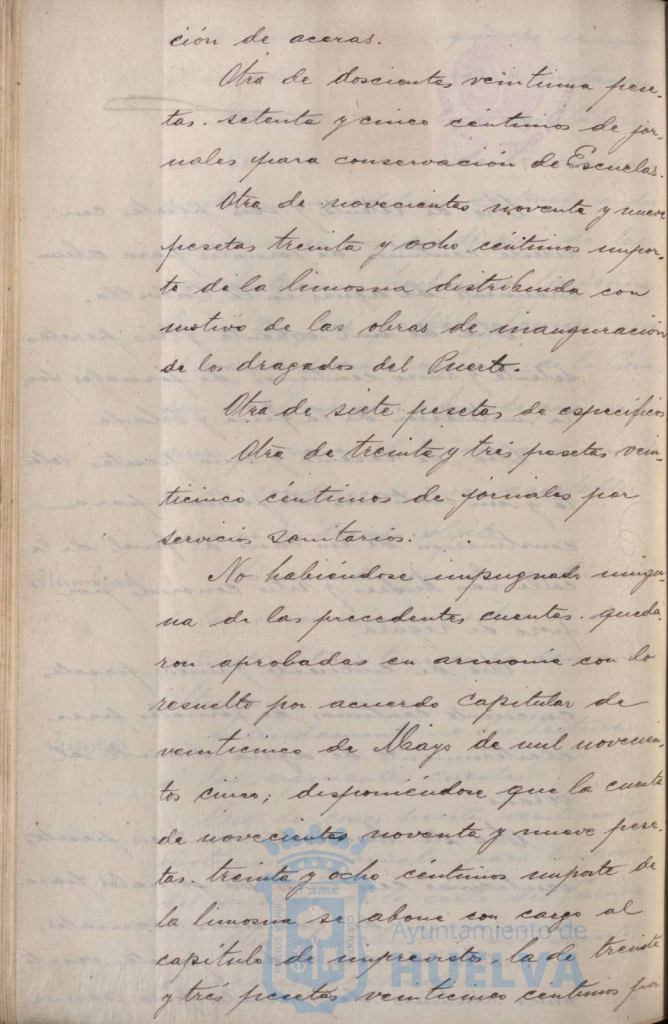 ción de aceras.
Otra de doscientas veintiuna pese-
tas. setenta y cinco céntimos de jor-
nales para conservación de Escuelas.
Otra de novecientas noventa y nueve
pesetas treinta y ocho céntimos impor-
te de la limosna distribuida con
motivo de las obras de inauguración
de los dragados del Puerto.
Otra de siete pesetas de específicos
Otra de treinta y tres pesetas vein-
ticinco céntimos de jornales por
servicios sanitarios.
No habiéndose impugnado ningu-
na de las precedentes cuentas. queda-
ron aprobadas en armonía con lo
resuelto por acuerdo capitular de
veinticinco de Mayo de mil novecien-
tos cinco; disponiéndose que la cuenta
de novecientas noventa y nueve pese-
tas. treinta y ocho céntimos importe de
la limosna se abone con cargo al
capítulo de imprevistos. la de treinta
y tres pesetas veinticinco céntimos por
Ayuntamiento de
HUELVA